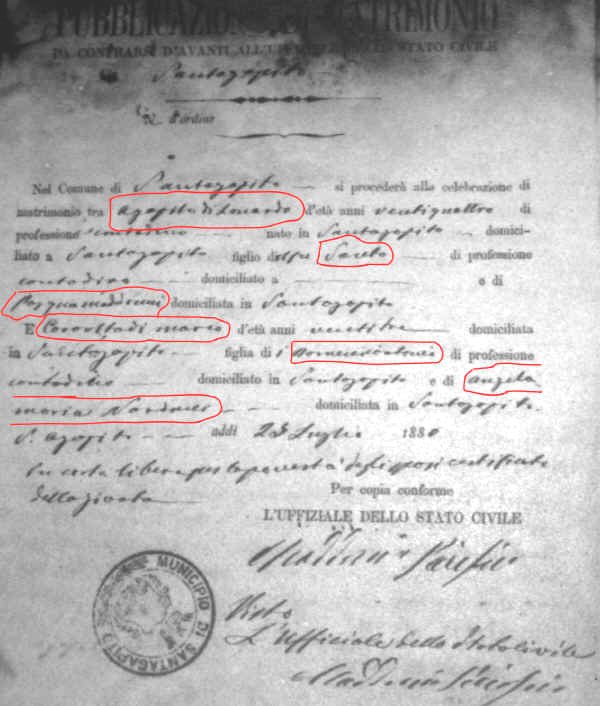 PUBBLICAZIONE DI MATRIMONIO
DA CONTRARSI D'AVANTI ALL'UFFIZIALE DELLO STATO CIVILE
Santagapito
N. d'ordine
Nel Comune di Santagapito si procederà alla celebrazione di
matrimonio tra Agapito di Leonardo d'età anni ventiquattro di
professione contadino nato in Santagapito domici-
liato a Santagapito figlio di di professione
contadino domiciliato a e di
domiciliata in Santagapito
E di Marco d'età anni ventitre domiciliata
in Santagapito figlia di Domenicantonio di professione
contadino domiciliato in Santagapito e di Angela
Maria domiciliata in Santagapito.
S. Agapito addì 23 Luglio 1880
In carta libera per la povertà certificata
dalla Giunta
Per copia conforme
L'UFFIZIALE DELLO STATO CIVILE
Visto
L'Ufficiale dello Stato Civile
MUNICIPIO DI SANTAGAPITO